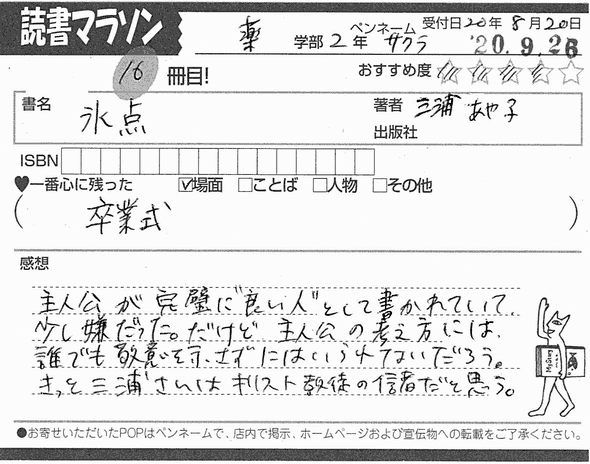 読書マラソン
薬 学部 2 年 ペンネーム サクラ 受付日 20年 8月 20日
'20. 9. 26
16 冊目! おすすめ度
書名 氷点 著者 三浦 あや子
出版社
ISBN
♥一番心に残った ☑場面 □ことば □人物 □その他
( 卒業式 )
感想
主人公が完璧に"良い人"として書かれていて、
少し嫌だった。だけど主人公の考え方には、
誰でも敬意を示さずにはいられないだろう。
きっと三浦さんはキリスト教徒の信者だと思う。
●お寄せいただいたPOPはペンネームで、店内で掲示、ホームページおよび宣伝物への転載をご了承ください。